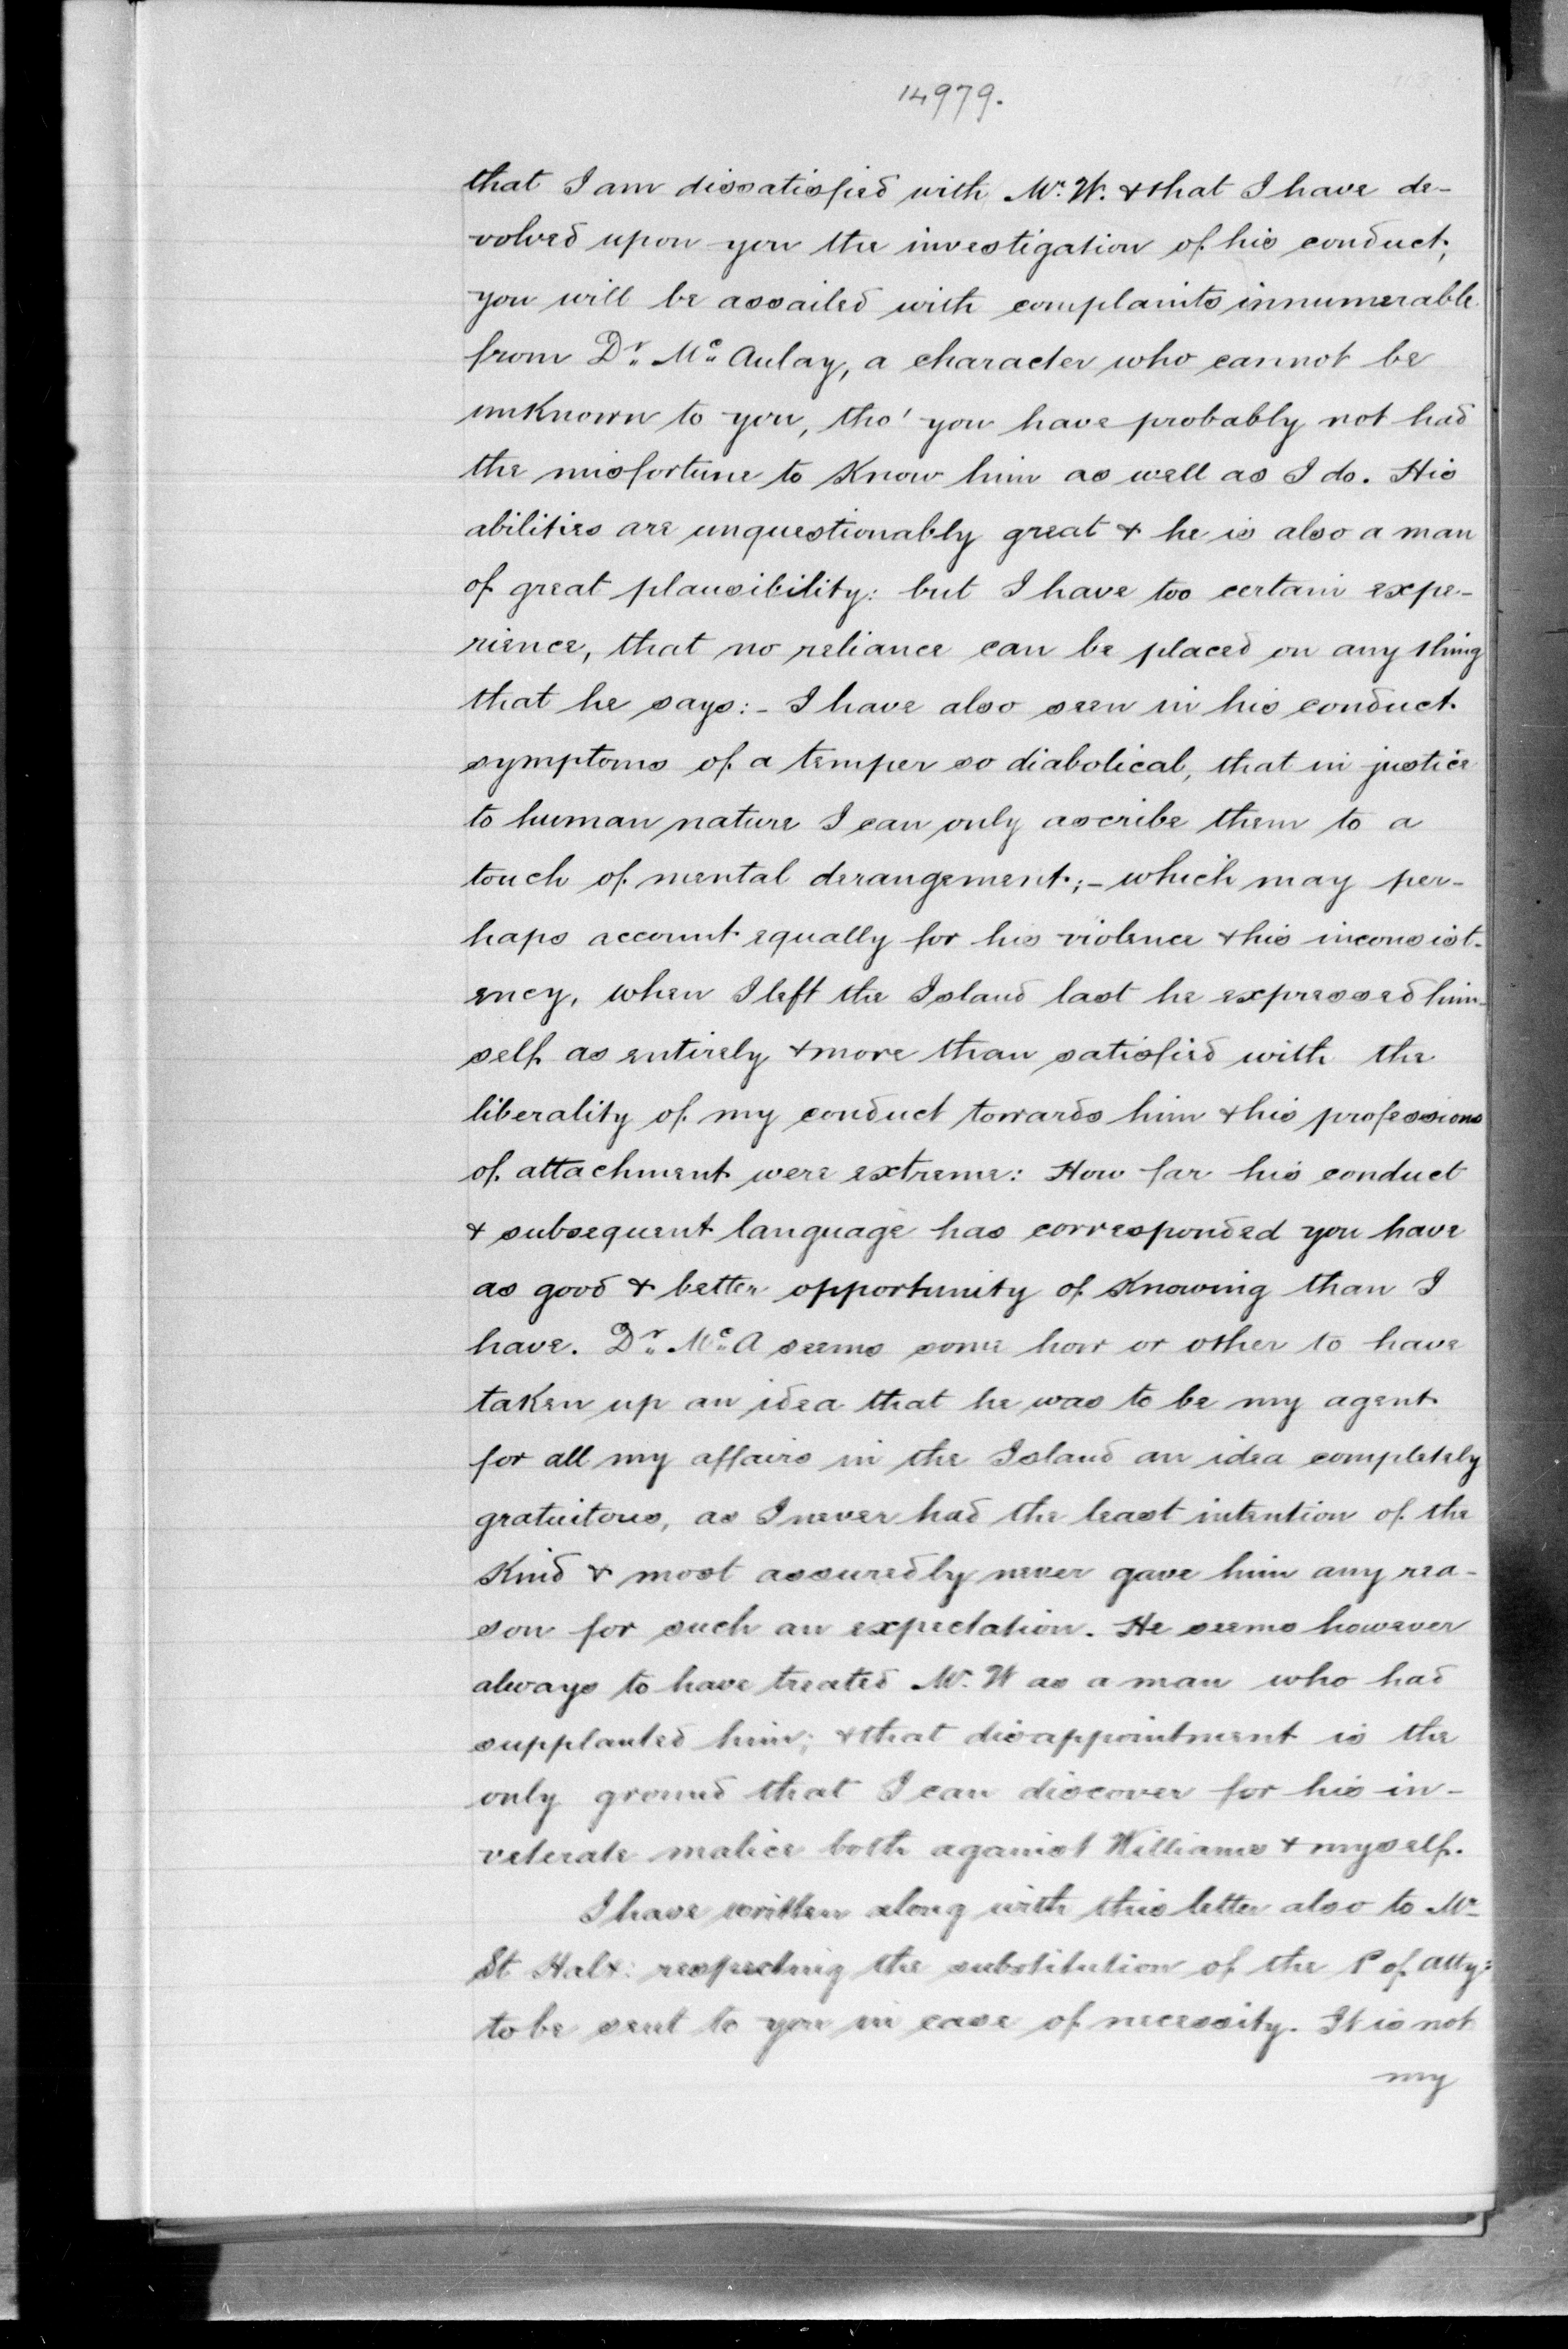 14979.
that I am dissatisfied with Mr. W. & that I have de-
volved upon you the investigation of his conduct,
you will be assailed with complaints innumerable
from Dr. Mc Aulay, a character who cannot be
unknown to you, tho' you have probably not had
the misfortune to know him as well as I do. His
abilities are unquestionably great & he is also a man
of great plausibility: but I have too certain expe-
rience, that no reliance can be placed on any thing
that he says:- I have also seen in his conduct
symptoms of a temper so diabolical, that in justice
to human nature I can only ascribe them to a
touch of mental derangement;- which may per-
haps account equally for his violence & his inconsist-
ency, when I left the Island last he expressed him-
self as entirely & more than satisfied with the
liberality of my conduct towards him & his professions
of attachment were extreme: How far his conduct
& subsequent language has corresponded you have
as good & better opportunity of knowing than I
have. Dr. Mc A seems some how or other to have
taken up an idea that he was to be my agent
for all my affairs in the Island an idea completely
gratuitous, as I never had the least intention of the
kind & most assuredly never gave him any rea-
son for such an expectation. He seems however
always to have treated Mr. W as a man who had
supplanted him; & that disappointment is the
only ground that I can discover for his in-
veterate malice both against Williams & myself.
I have written along with this letter also to Mr
St Halx: respecting the substitution of the P of Atty:
to be sent to you in case of necessity. It is not
my